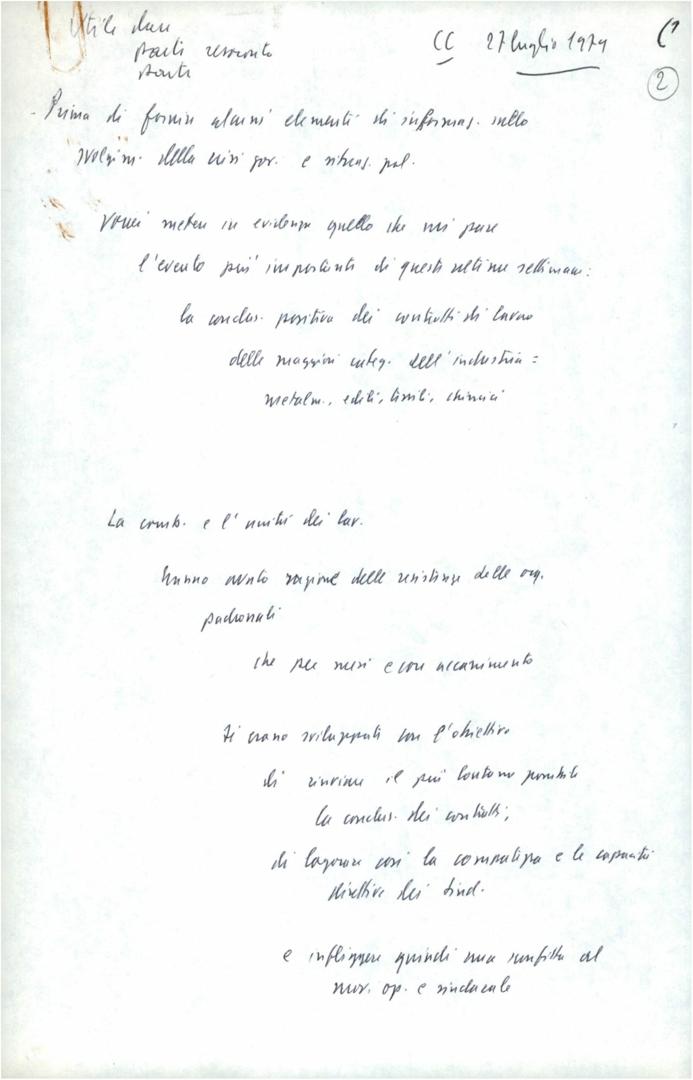 Utile dare
parti resoconto
parti
CC 27 luglio 1979
2
- Prima di fornire alcuni elementi di informaz. sullo
svolgim. della crisi gov. e situaz. pol.
vorrei mettere in evidenza quello che mi pare
l'evento più importante di queste ultime settimane:
la conclus. positiva dei contratti di lavoro
delle maggiori categ. dell'industria =
metalm., edili, tessili, chimici
La comb. e l'unità dei lav.
hanno avuto ragione delle resistenze delle org.
padronali
che per mesi e con accanimento
si erano sviluppate con l'obiettivo
di rinviare il più lontano possibile
la conclus. dei contratti;
di logorare così la compattezza e le capacità
direttive dei sind.
e infliggere quindi una sconfitta al
mov. op. e sindacale